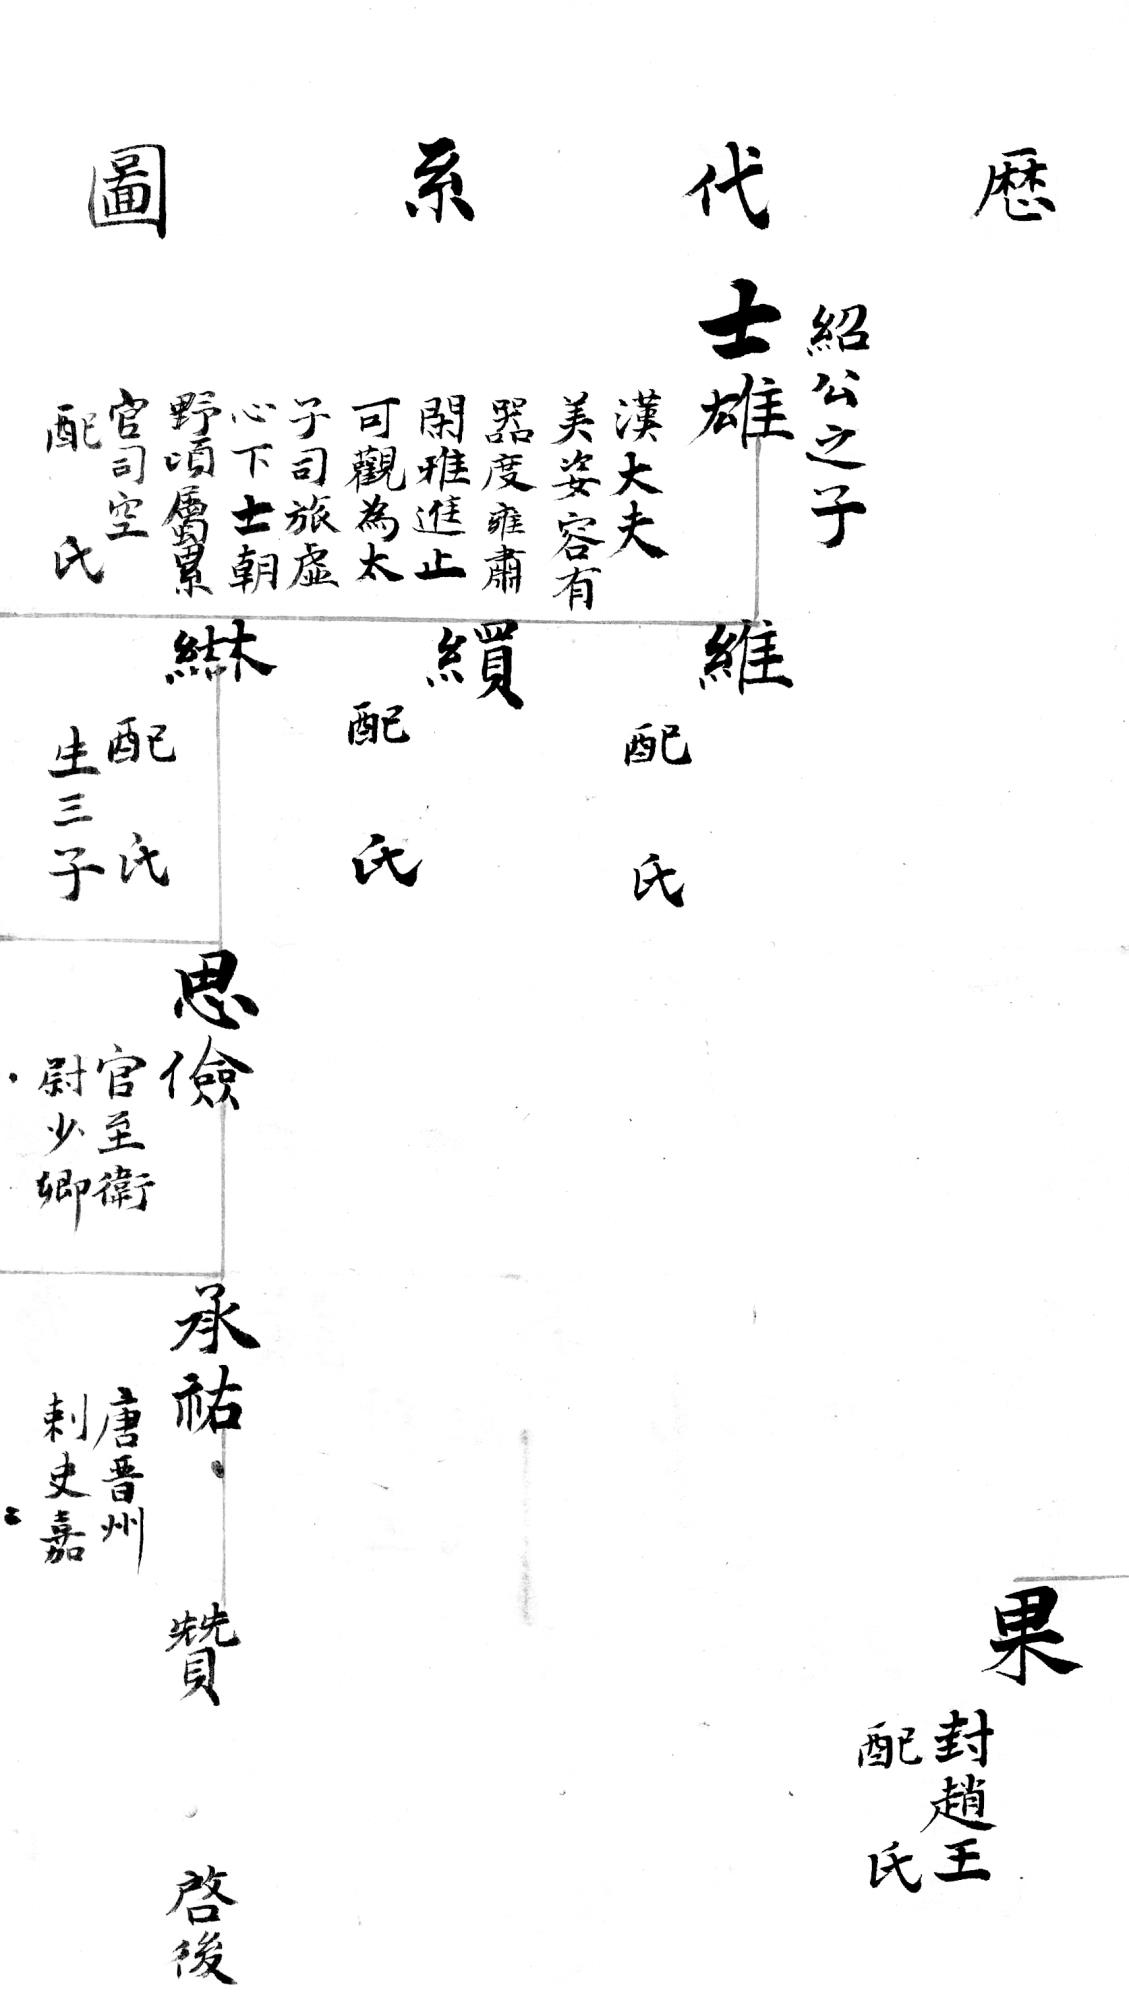 歷代系圖
紹公之子
士雄
漢大夫
美姿容有
器度雍肅
閑雅進止
可觀為太
子司旅虛
心下士朝
野頃屬累
官司空
配氏
維
配氏
纘
配氏
配氏
生三子
思儉
官至衛
尉少卿
承祐
唐晋州
刺史嘉
贊
啓後
果
封趙王
配氏